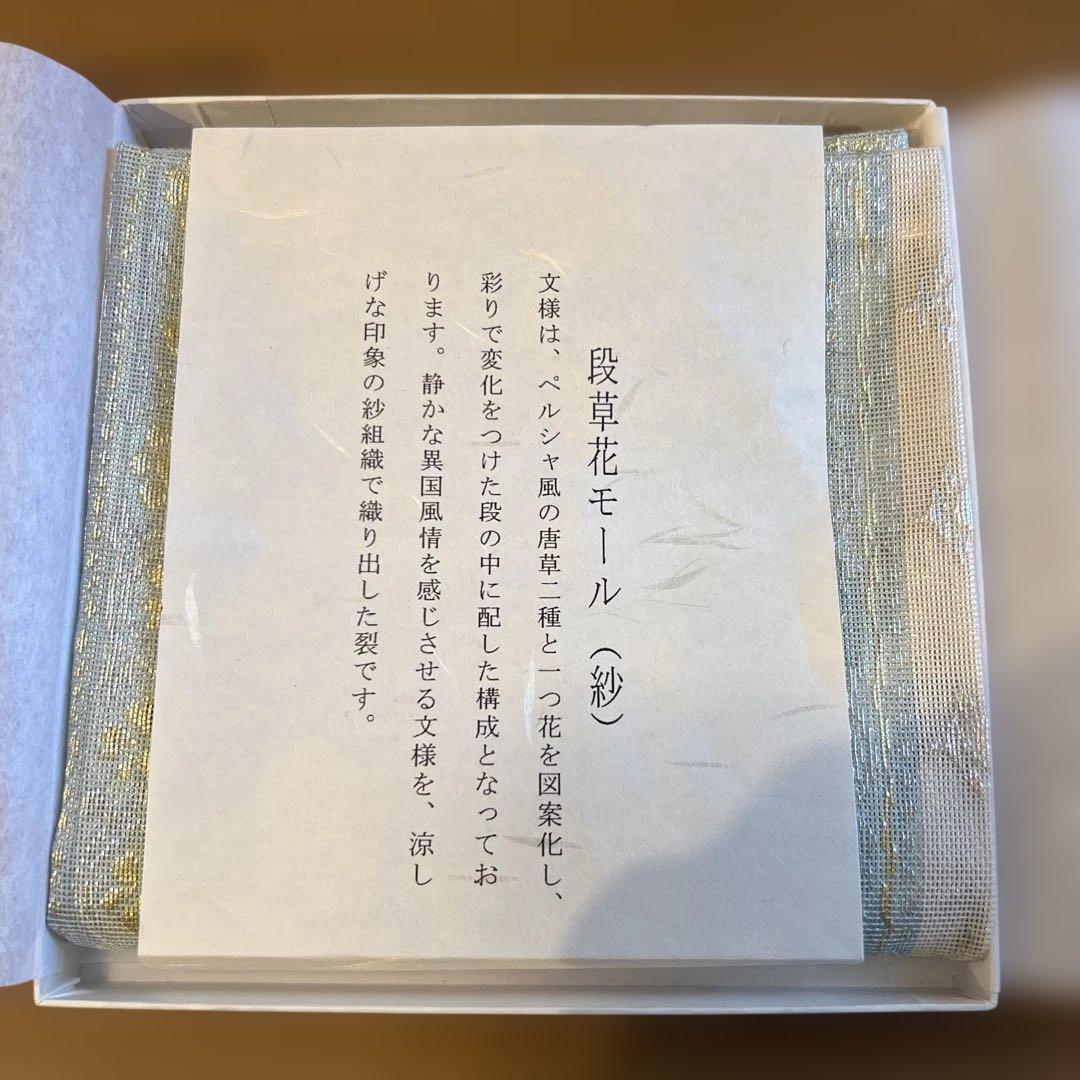 段草花モール（紗）
文様は、ペルシャ風の唐草二種と一つ花を図案化し、
彩りで変化をつけた段の中に配した構成となってお
ります。静かな異国風情を感じさせる文様を、涼し
げな印象の紗組織で織り出した裂です。